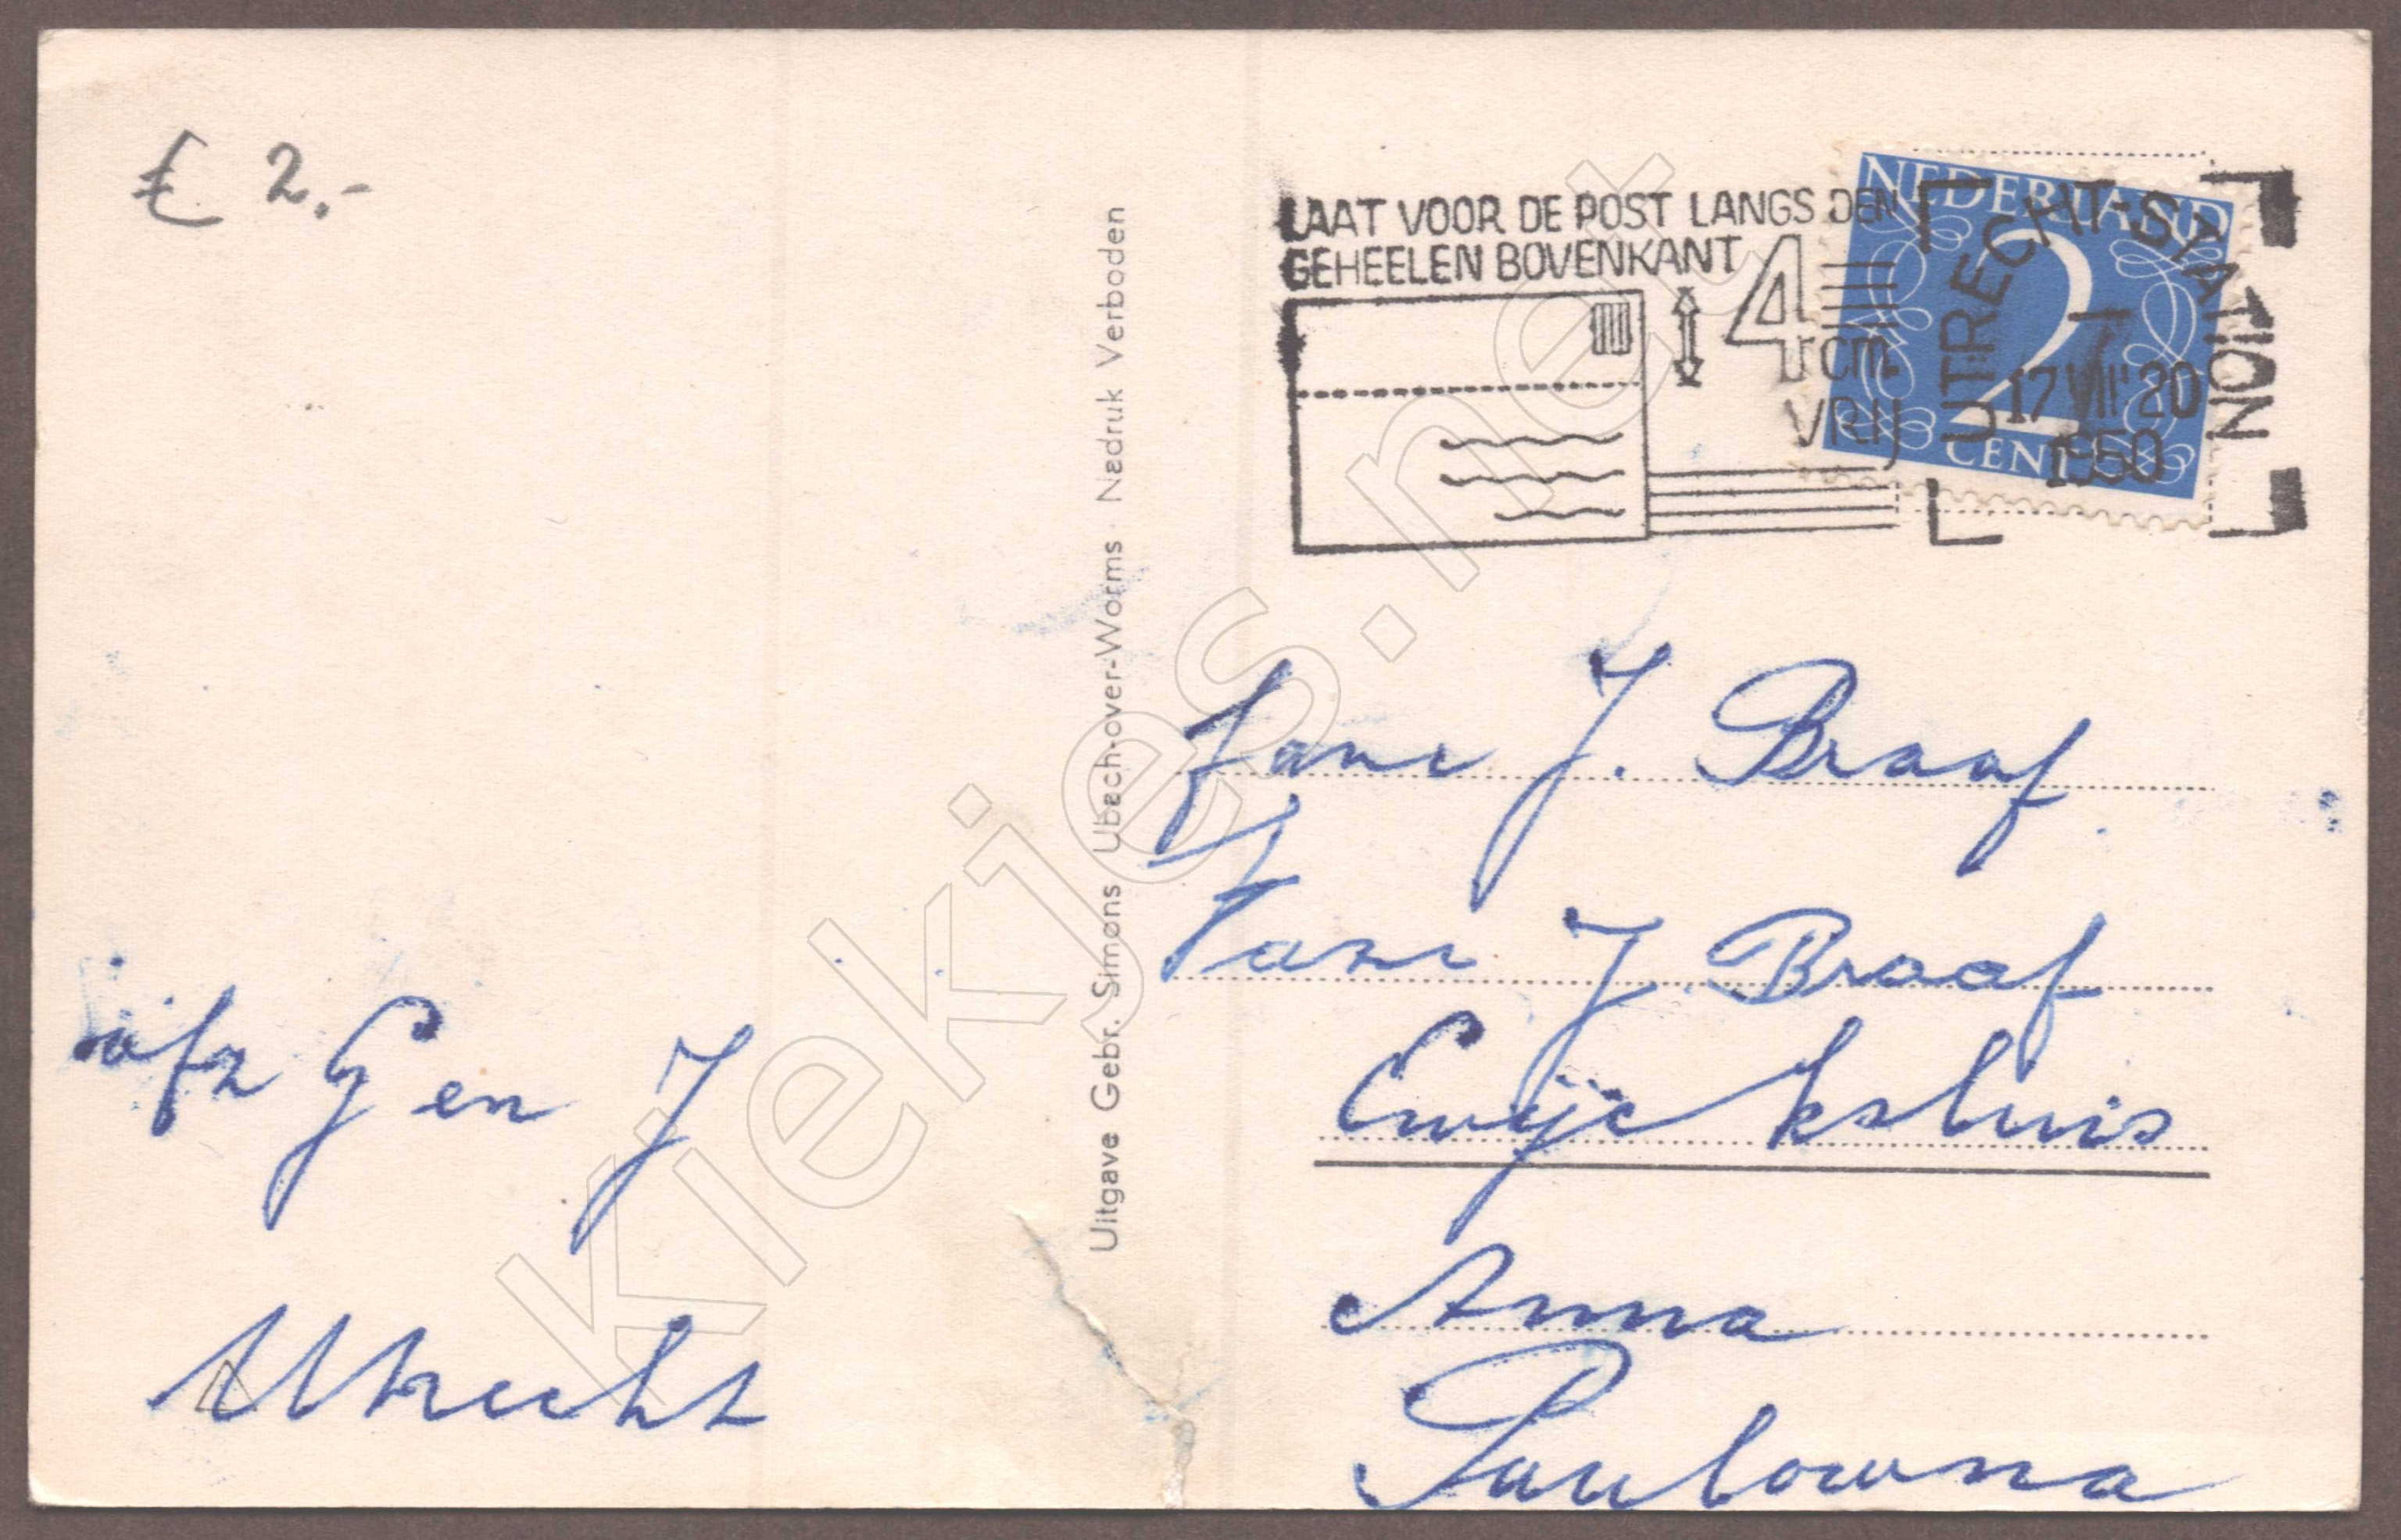 € 2,-
LAAT VOOR DE POST LANGS DEN
GEHEELEN BOVENKANT
4 cm.
VRIJ
NEDERLAND
2
CENT
UTRECHT-STATION
17 VII 20
1950
Uitgave Gebr. Simons Ubach-over-Worms Nadruk Verboden
Fam J. Braaf
Fam J Braaf
Ewijcksluis
Anna
Paulowna
afz G en J
Utrecht
kiekjes.net